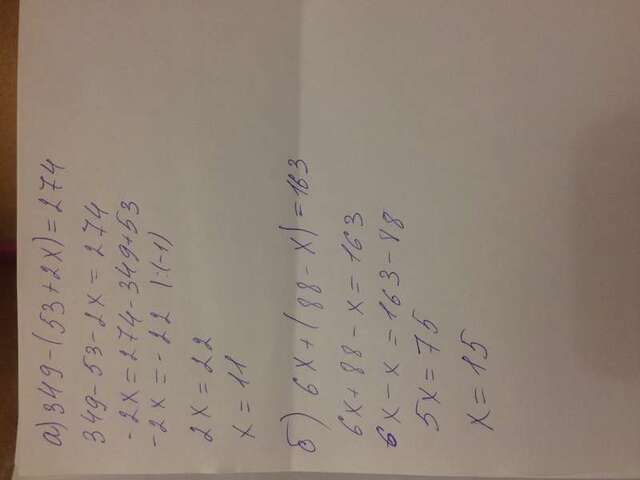 а) 349-(53+2x)=274
349-53-2x=274
-2x=274-349+53
-2x=-22 |:(-1)
2x=22
x=11
б) 6x+(88-x)=163
6x+88-x=163
6x-x=163-88
5x=75
x=15